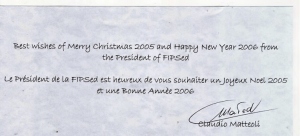 Best wishes of Merry Christmas 2005 and Happy New Year 2006 from
the President of FIPSed
Le Président de la FIPSed est heureux de vous souhaiter un Joyeux Noel 2005
et une Bonne Année 2006
Claudio Matteoli